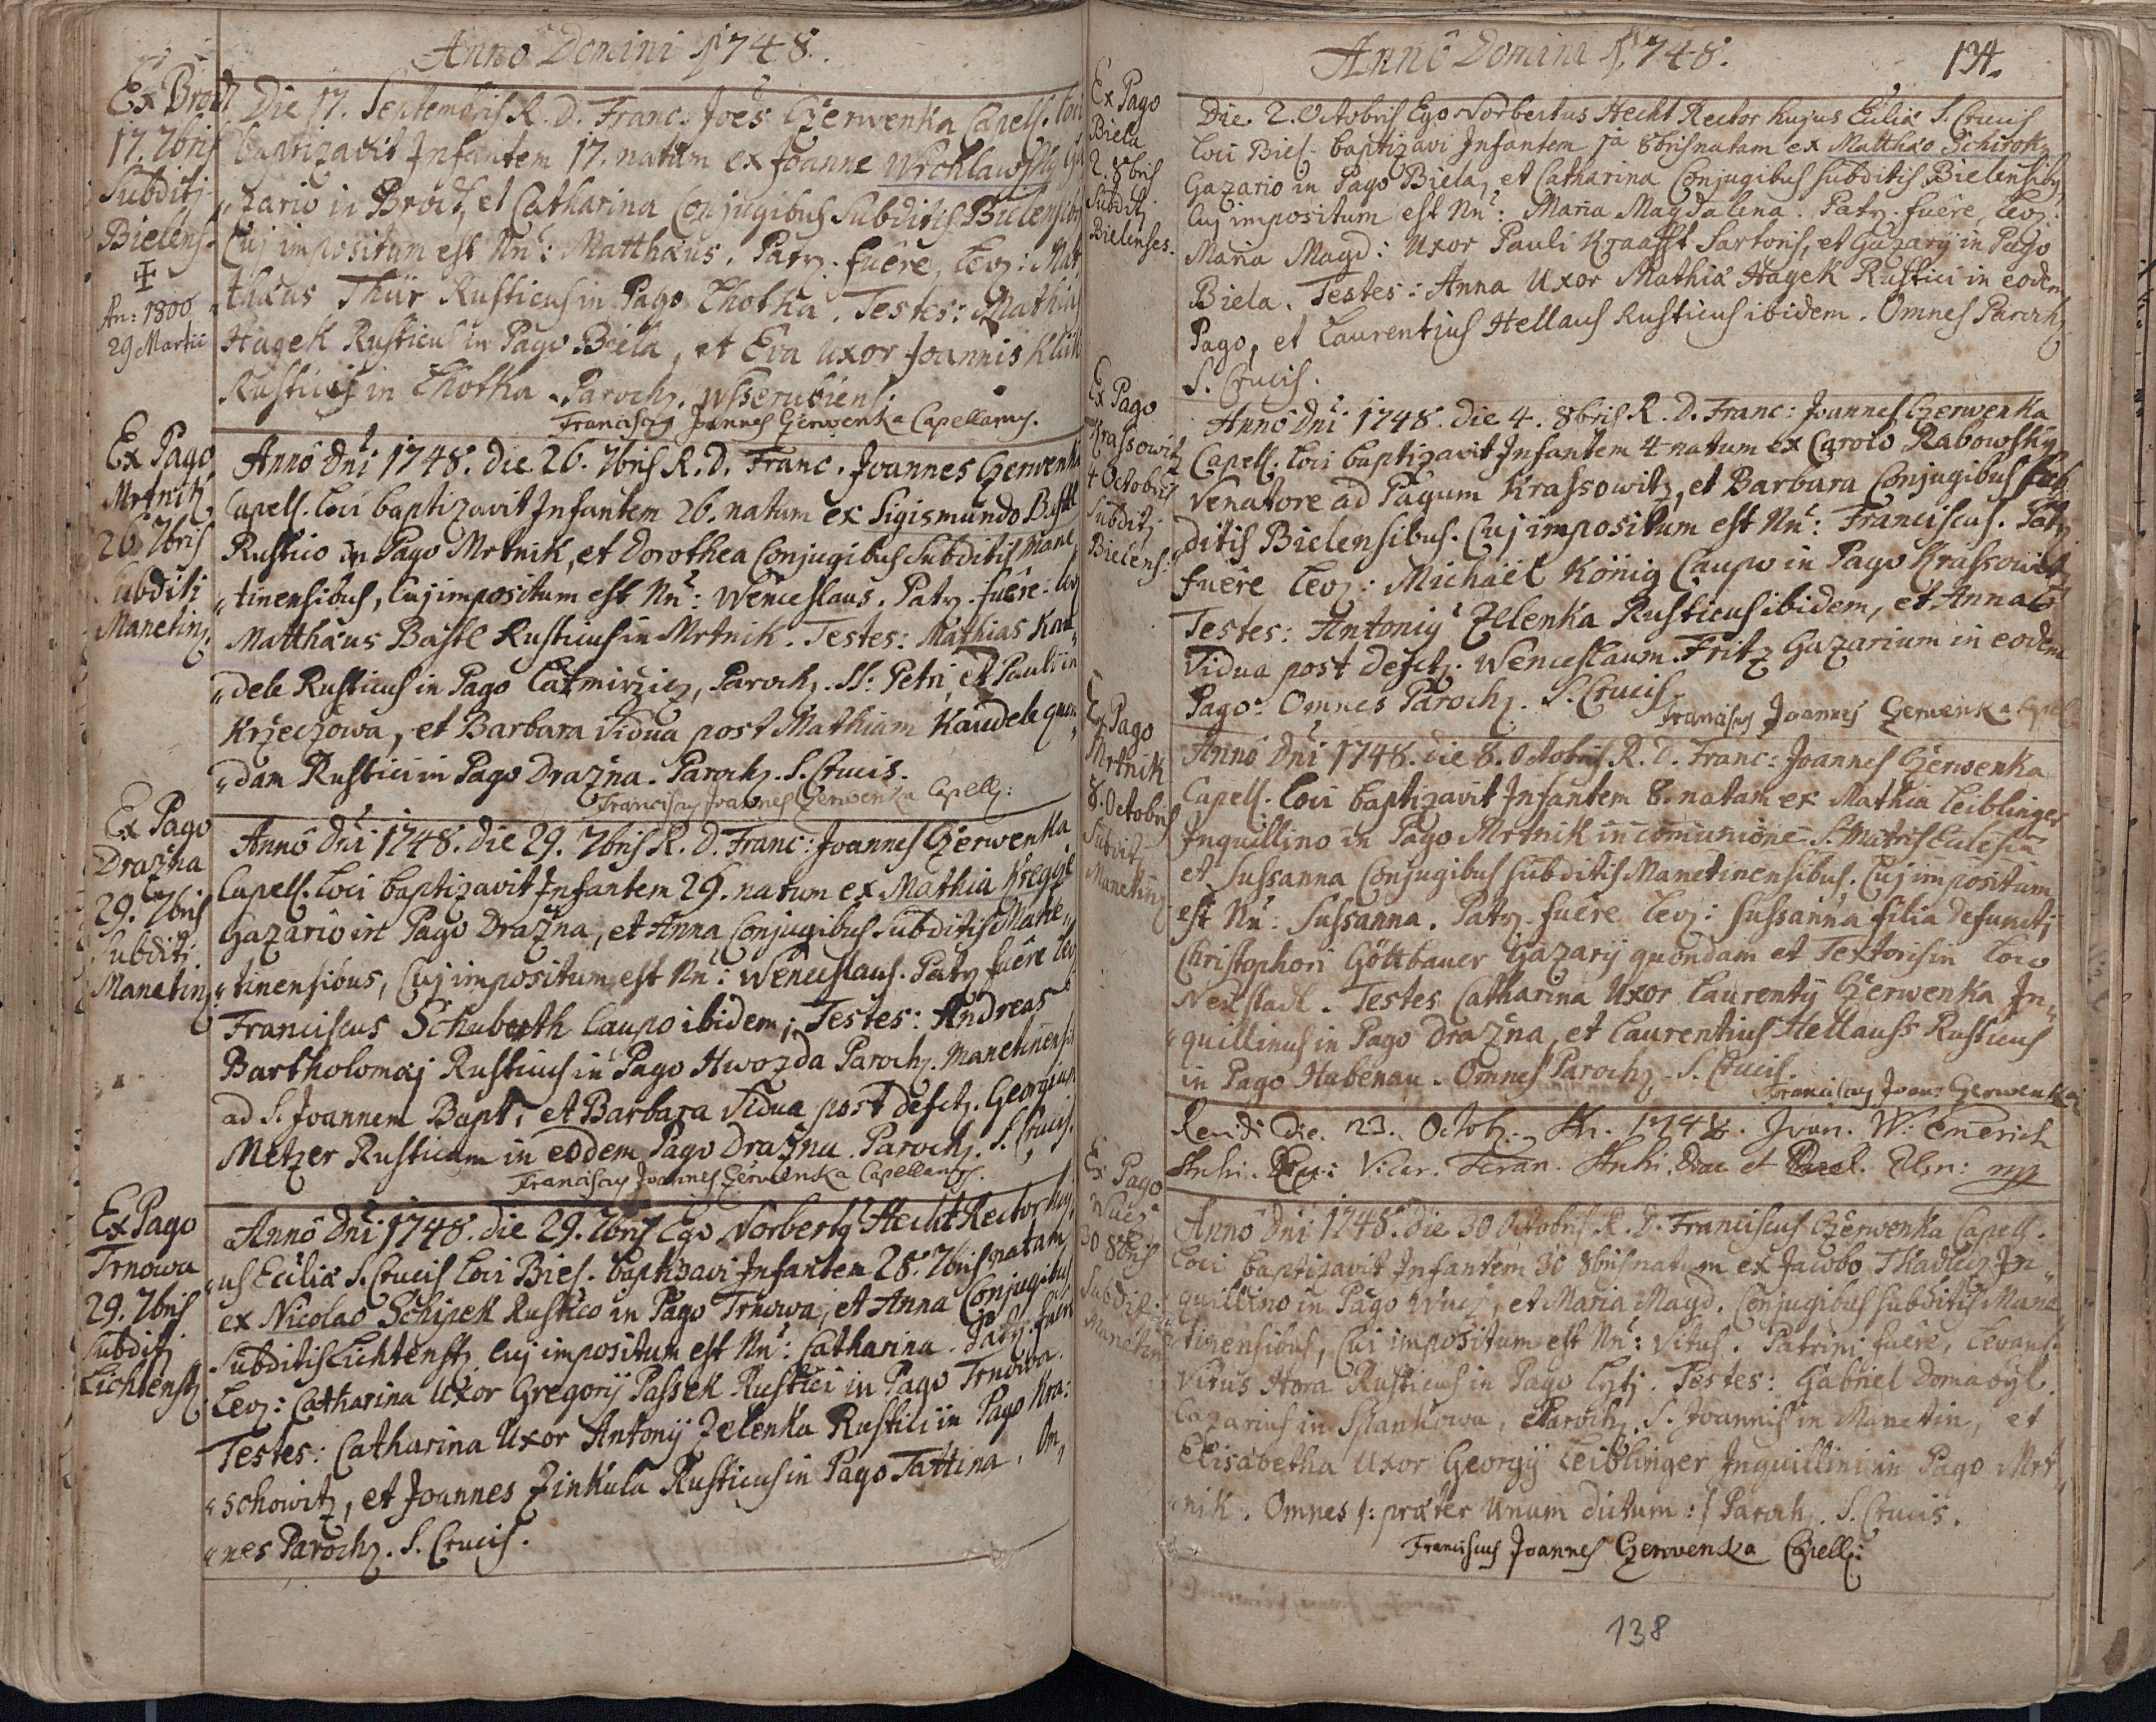 Anno Domini 1748.
Ex Brod
17. 7bris
Subditj
Bielens.
An: 1800
29 Martii
Die 17. Septembris R. D. Franc. Joes Czerwenka Capell. loci
baptizavit Infantem 17. natum ex Joanne Wrchlawsky Ga
"zario in Brod, et Catharina Conjugibus Subditis Bielensibus
Cuj impositum est Nn: Matthæus. Patr. fuêre, lev: Mat
"thæus Thür Rusticus in Pago Lhotka. Testes: Mathias
Hagek Rusticus in Pago Biela, et Eva Uxor Joannis Klik
Rustici in Lhotka. Paroch. Wsserubiens.
Franciscus Joannes Czerwenka Capellanus.
Ex Pago
Mrtnik
26. 7bris
Subditi
Manetin.
Annô Dni 1748. die 26. 7bris R. D. Franc. Joannes Czerwenka
Capell. loci baptizavit Infantem 26. natum ex Sigismundo Bastl
Rustico in Pago Mrtnik, et Dorothea Conjugibus Subditis Mane
"tinensibus, Cuj impositum est Nn: Wenceslaus. Patr. fuêre: lev
Matthæus Bastl Rusticus in Mrtnik. Testes: Mathias Kau
"dele Rusticus in Pago Casmirzicz, Paroch. SS: Petri, et Pauli in
Krzeczowa, et Barbara Vidua post Mathiam Kaudele quon
"dam Rustici in Pago Drazna. Paroch. S. Crucis.
Franciscus Joannes Czerwenka Capell:
Ex Pago
Drazna
29. 7bris
Subditi
Manetin.
Annô Dni 1748. die 29. 7bris R. D. Franc: Joannes Czerwenka
Capell. loci baptizavit Infantem 29. natum ex Mathia Kregze
Gazario in Pago Drazna, et Anna Conjugibus Subditis Mane
"tinensibus, Cuj impositum est Nn: Wenceslaus. Patr. fuêre lev
Franciscus Schuberth Caupo ibidem; Testes: Andreas
Bartholomæj Rusticus in Pago Hwozda Paroch. Manetinensis
ad S. Joannem Bapt. et Barbara Vidua post defct. Georgium
Metzer Rusticum in eodem Pago Drazna Paroch. S. Crucis.
Franciscus Joannes Czerwenka Capellanus.
Ex Pago
Trnowa
29. 7bris
Subditj
Lichtenst.
Annô Dni 1748. die 29. 7bris Ego Norbertus Hecht Rector huj
"us Eccliæ S. Crucis loci Biel. baptizavi Infantem 28. 7bris natam
ex Nicolao Schipek Rustico in Pago Trnowa, et Anna Conjugibus
Subditis Lichtenst. Cuj impositum est Nn: Catharina. Patr. fuere
Lev: Catharina Uxor Gregorij Passek Rustici in Pago Trnowa.
Testes: Catharina Uxor Antonij Zelenka Rustici in Pago Kra:
"schowitz, et Joannes Zinkula Rusticus in Pago Tattina. Om
"nes Paroch. S. Crucis.
Annô Domini 1748.
134.
Ex Pago
Biela
2. 8bris
Subditj
Bielenses.
Die 2. Octobris Ego Norbertus Hecht Rector hujus Eccliæ S. Crucis
loci Biel. baptizavi Infantem 1a 8bris natam ex Matthæo Schiroky
Gazario in Pago Biela, et Catharina Conjugibus subditis Bielensibus
Cuj impositum est Nn: Maria Magdalena. Patr. fuêre, lev:
Maria Magd: Uxor Pauli Kraafft Sartoris, et Gazarij in Pago
Biela. Testes: Anna Uxor Mathiæ Hagek Rustici in eodem
Pago, et Laurentius Hellaus Rusticus ibidem. Omnes Paroch.
S. Crucis.
Ex Pago
Krassowitz
4 Octobris
Subditj
Bielens:
Annô Dni 1748. die 4. 8bris R. D. Franc: Joannes Czerwenka
Capell. loci baptizavit Infantem 4 natum ex Carolo Rabowsky
Venatore ad Pagum Krassowitz, et Barbara Conjugibus Sub
ditis Bielensibus. Cuj impositum est Nn: Franciscus. Patr
fuêre lev: Michaël König Caupo in Pago Krassowitz
Testes: Antonius Zelenka Rusticus ibidem, et Anna
Vidua post defct. Wenceslaum Fritz Gazarium in eodem
Pago. Omnes Paroch. S. Crucis
Franciscus Joannes Czerwenka Capell
Ex Pago
Mrtnik
8. Octobris
Subdit,
Manetin.
Annô Dni 1748. die 8. Octobris R. D. Franc: Joannes Czerwenka
Capell. loci baptizavit Infantem 8. natam ex Mathia Leiblinger
Inquillino in Pago Mrtnik in comunione S. Matris Ecclesiæ
et Sussanna Conjugibus subditis Manetinensibus. Cuj impositum
est Nn: Sussanna. Patr. fuêre lev: Sussanna filia defuncti
Christophori Göltbauer Gazarij quondam et Textoris in loco
Neustadl. Testes Catharina Uxor Laurentij Czerwenka In
"quillinus in Pago Drazna, et Laurentius Hellauss Rusticus
in Pago Hubenau. Omnes Paroch. S. Crucis.
Franciscus Joan: Czerwenka
Revidi Die. 23. Octob. An. 1748. Joan. W. Emerich
Ex Pago
30 8bris
Subdit.
Manetin
Annô Dni 1748. die 30 Octobris R. D. Franciscus Czerwenka Capell.
loci baptizavit Infantem 30 8bris natum ex Jacobo Tkadlecz In
quillino in Pago Wucz, et Maria Magd. Conjugibus subditis Mane
"tinensibus, Cui impositum est Nn: Vitus. Patrini fuêre, Levans:
Vitus Hora Rusticus in Pago Lytj. Testes: Gabriel Domabyl.
Cazarius in Stankowa, Paroch. S. Joannis in Manetin, et
Elisabetha Uxor Georgij Leiblinger Inquillini in Pago Mrt
"nik. Omnes /: præter Unum dictum :/ Paroch. S. Crucis.
Franciscus Joannes Czerwenka Capell:
138